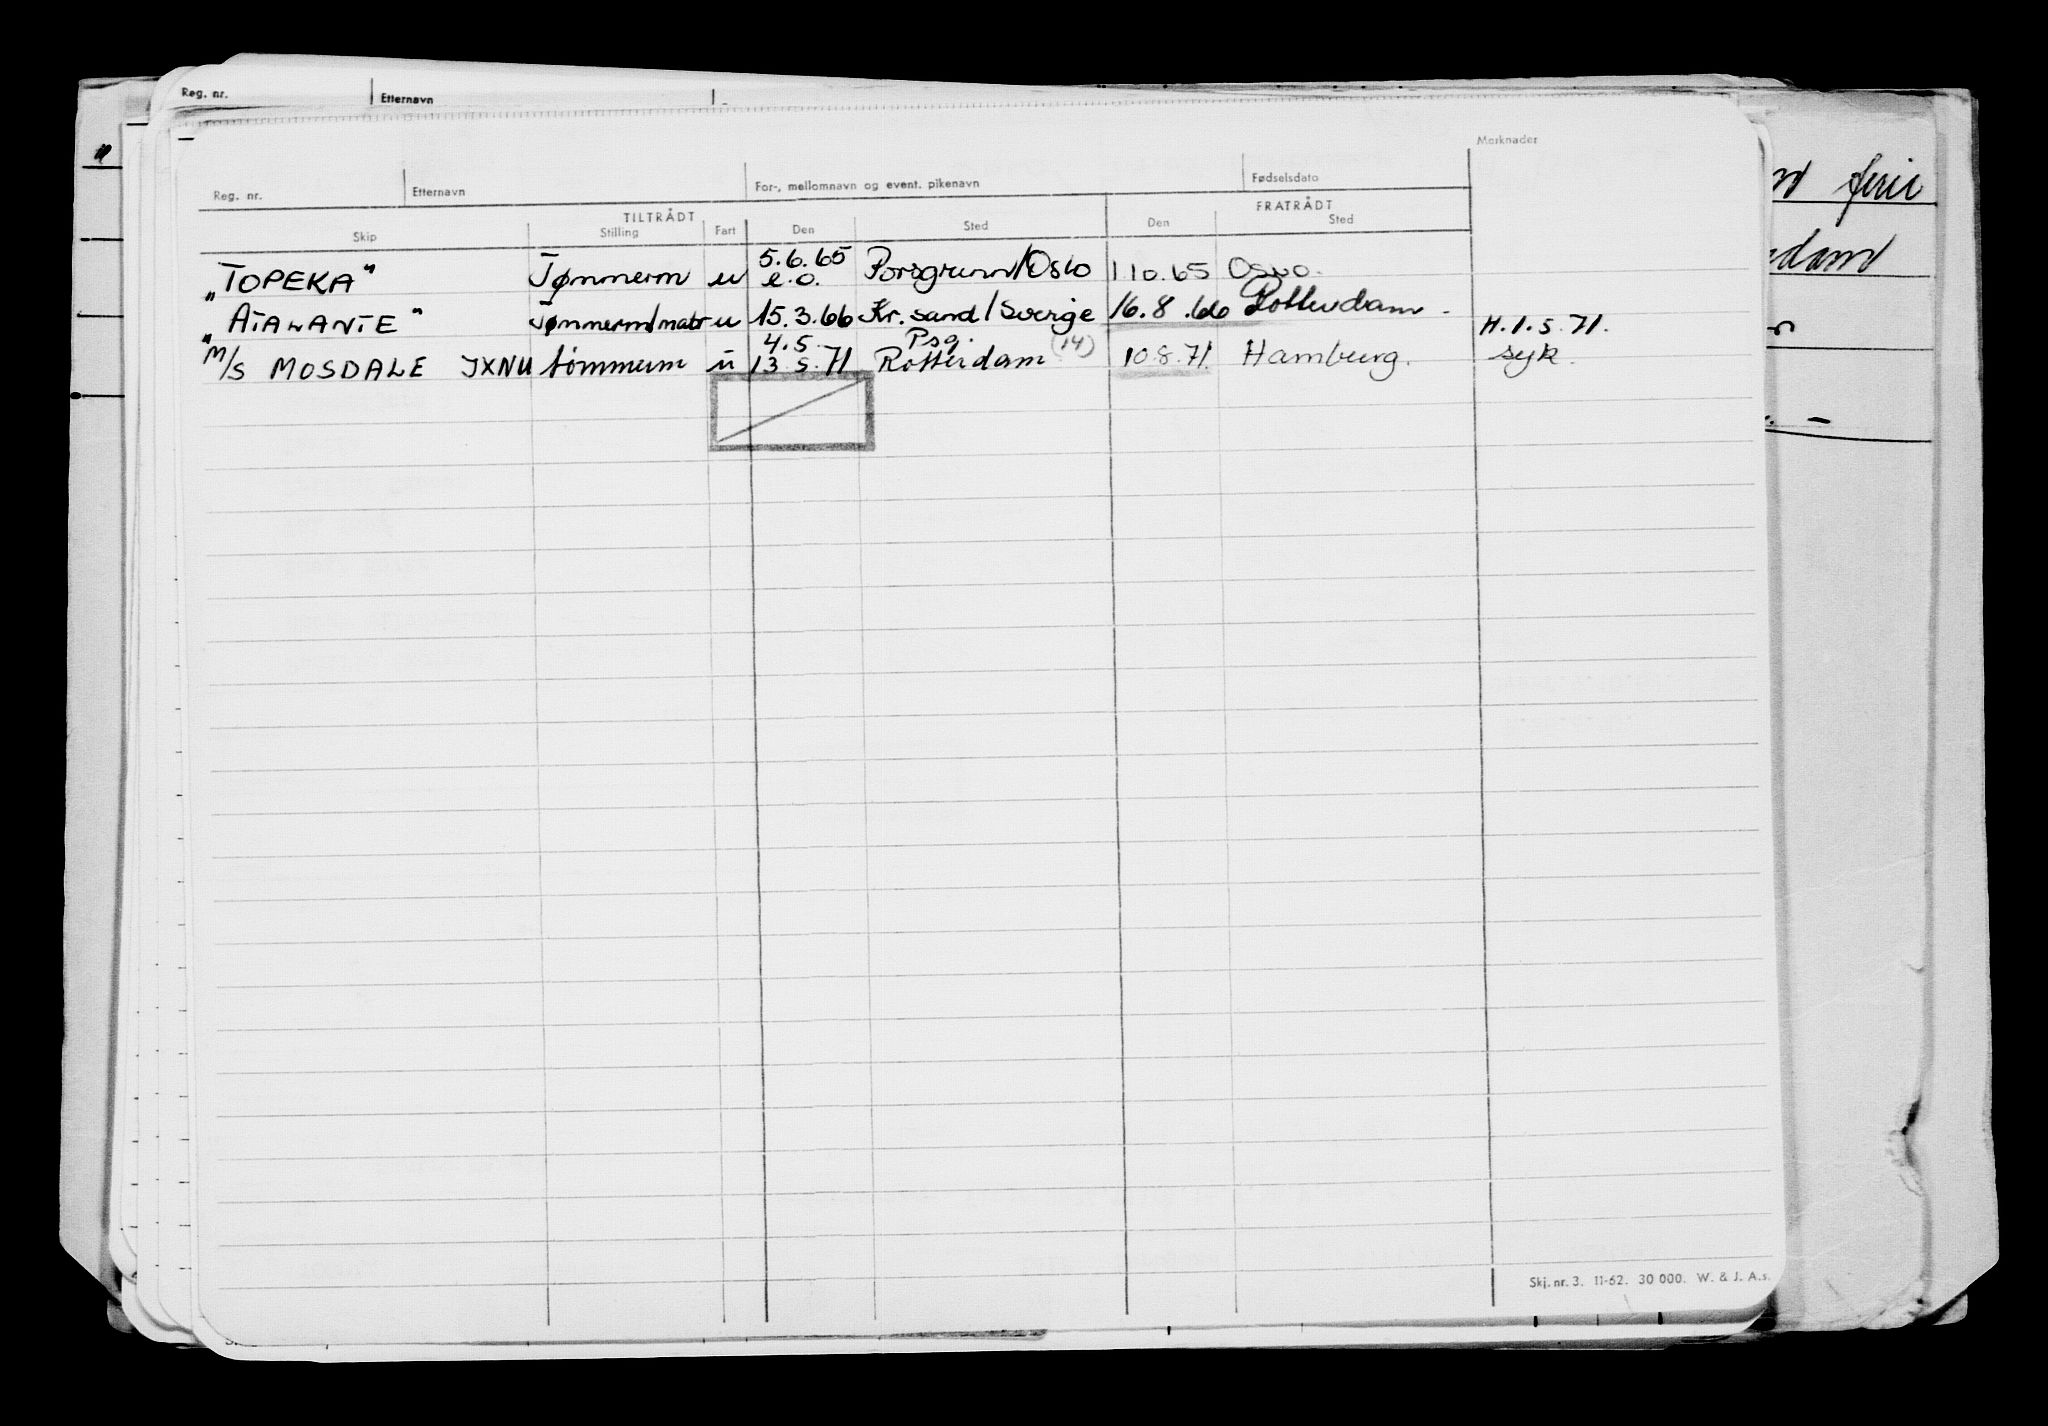 Reg. nr. Etternavn
Merknader
Reg. nr. Etternavn For-, mellomnavn og event. pikenavn Fødselsdato
TILTRÅDT FRATRÅDT
Skip Stilling Fart Den Sted Den Sted
5.6.65
„TOPEKA" Tømmerm u e.o. Porsgrunn/Oslo 1.10.65 Oslo.
„ATALANTE" Tømmerm/matr u 15.3.66 Kr.sand/Sverige 16.8.66 Rotterdam.
4.5. Psg. (14) H.1.5.71.
M/S MOSDALE JXNU tømmerm u 13.5.71 Rotterdam 10.8.71. Hamburg. syk.
ferie
Skj. nr. 3. 11-62. 30 000. W. & J. A.s.